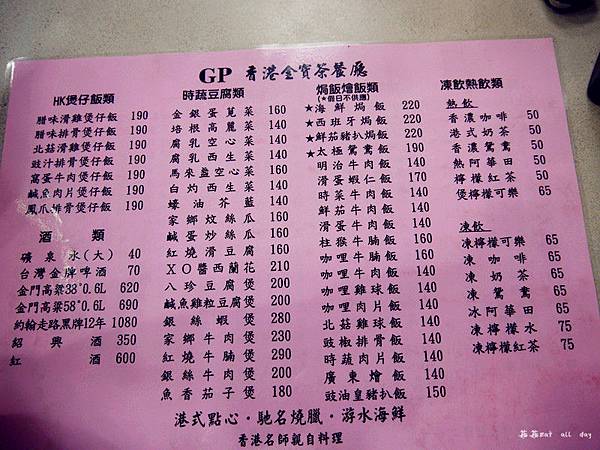 GP 香港金寶茶餐廳
HK煲仔飯類
腊味滑雞煲仔飯 190
腊味排骨煲仔飯 190
北菇滑雞煲仔飯 190
豉汁排骨煲仔飯 190
窩蛋牛肉煲仔飯 190
鹹魚肉片煲仔飯 190
鳳爪排骨煲仔飯 190
酒類
礦泉水(大) 40
台灣金牌啤酒 70
金門高粱38°0.6L 620
金門高粱58°0.6L 690
約翰走路黑牌12年 1080
紹興酒 350
紅酒 600
時蔬豆腐類
金銀蛋莧菜 160
培根高麗菜 140
腐乳空心菜 140
腐乳西生菜 140
馬來盞空心菜 160
白灼西生菜 140
蠔油芥藍 140
家鄉炆絲瓜 160
鹹蛋炒絲瓜 160
紅燒滑豆腐 160
XO醬西蘭花 210
八珍豆腐煲 200
鹹魚雞粒豆腐煲 200
銀絲蝦煲 280
家鄉牛肉煲 230
紅燒牛腩煲 290
銀絲牛肉煲 200
魚香茄子煲 180
焗飯燴飯類
(★假日不供應)
★海鮮焗飯 220
★西班牙焗飯 220
★鮮茄豬扒焗飯 220
★太極鴛鴦飯 190
明治牛肉飯 140
滑蛋蝦仁飯 170
時菜牛肉飯 140
鮮茄牛肉飯 140
滑蛋牛肉飯 140
柱猴牛腩飯 160
咖哩牛腩飯 160
咖哩牛肉飯 140
咖哩雞球飯 140
咖哩肉片飯 140
北菇雞球飯 140
豉椒排骨飯 140
時蔬肉片飯 140
廣東燴飯 140
豉油皇豬扒飯 150
凍飲熱飲類
熱飲
香濃咖啡 50
港式奶茶 50
香濃鴛鴦 50
熱阿華田 50
檸檬紅茶 50
煲檸檬可樂 65
凍飲
凍檸檬可樂 65
凍咖啡 65
凍奶茶 65
凍鴛鴦 65
冰阿華田 65
凍檸檬水 75
凍檸檬紅茶 75
港式點心·馳名燒臘·游水海鮮
香港名師親自料理
菇菇eat all day